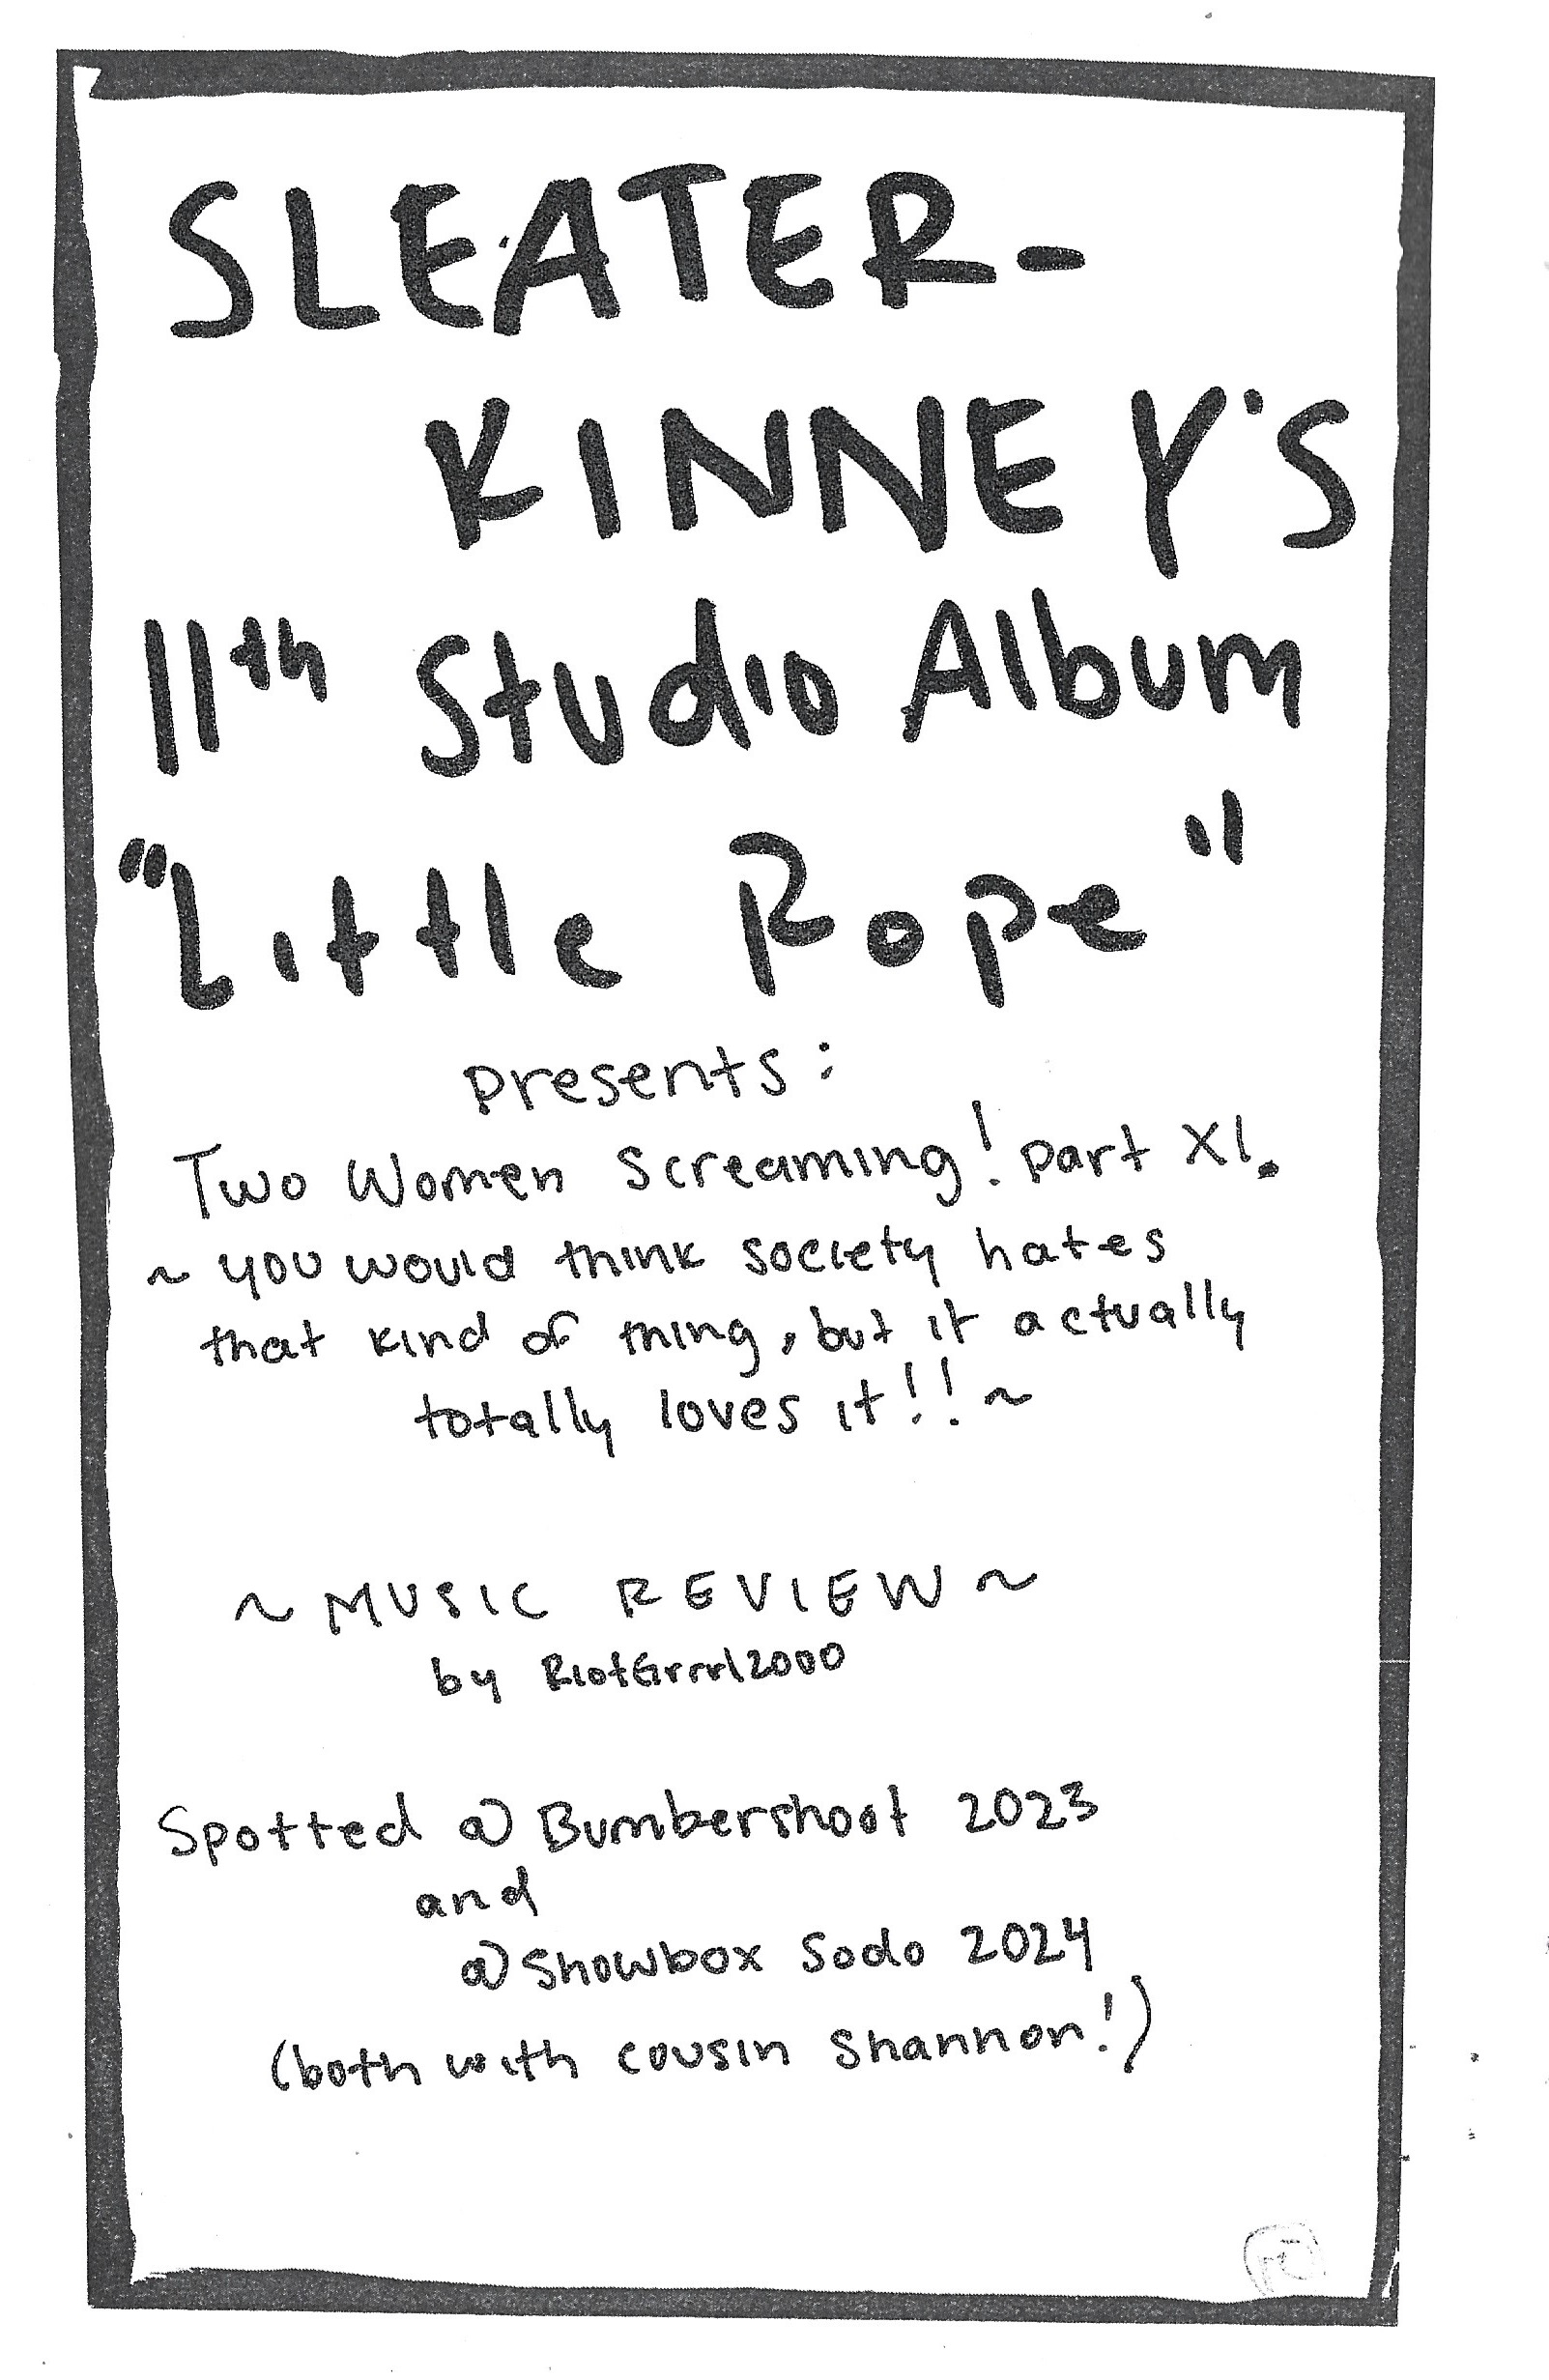 SLEATER-
KINNEY'S
11th Studio Album
"Little Rope"
presents:
Two Women Screaming! part XI.
~ you would think society hates
that kind of thing, but it actually
totally loves it!! ~
~ MUSIC REVIEW ~
by RiotGrrrl2000
Spotted @ Bumbershoot 2023
and
@ Showbox Sodo 2024
(both with cousin Shannon!)